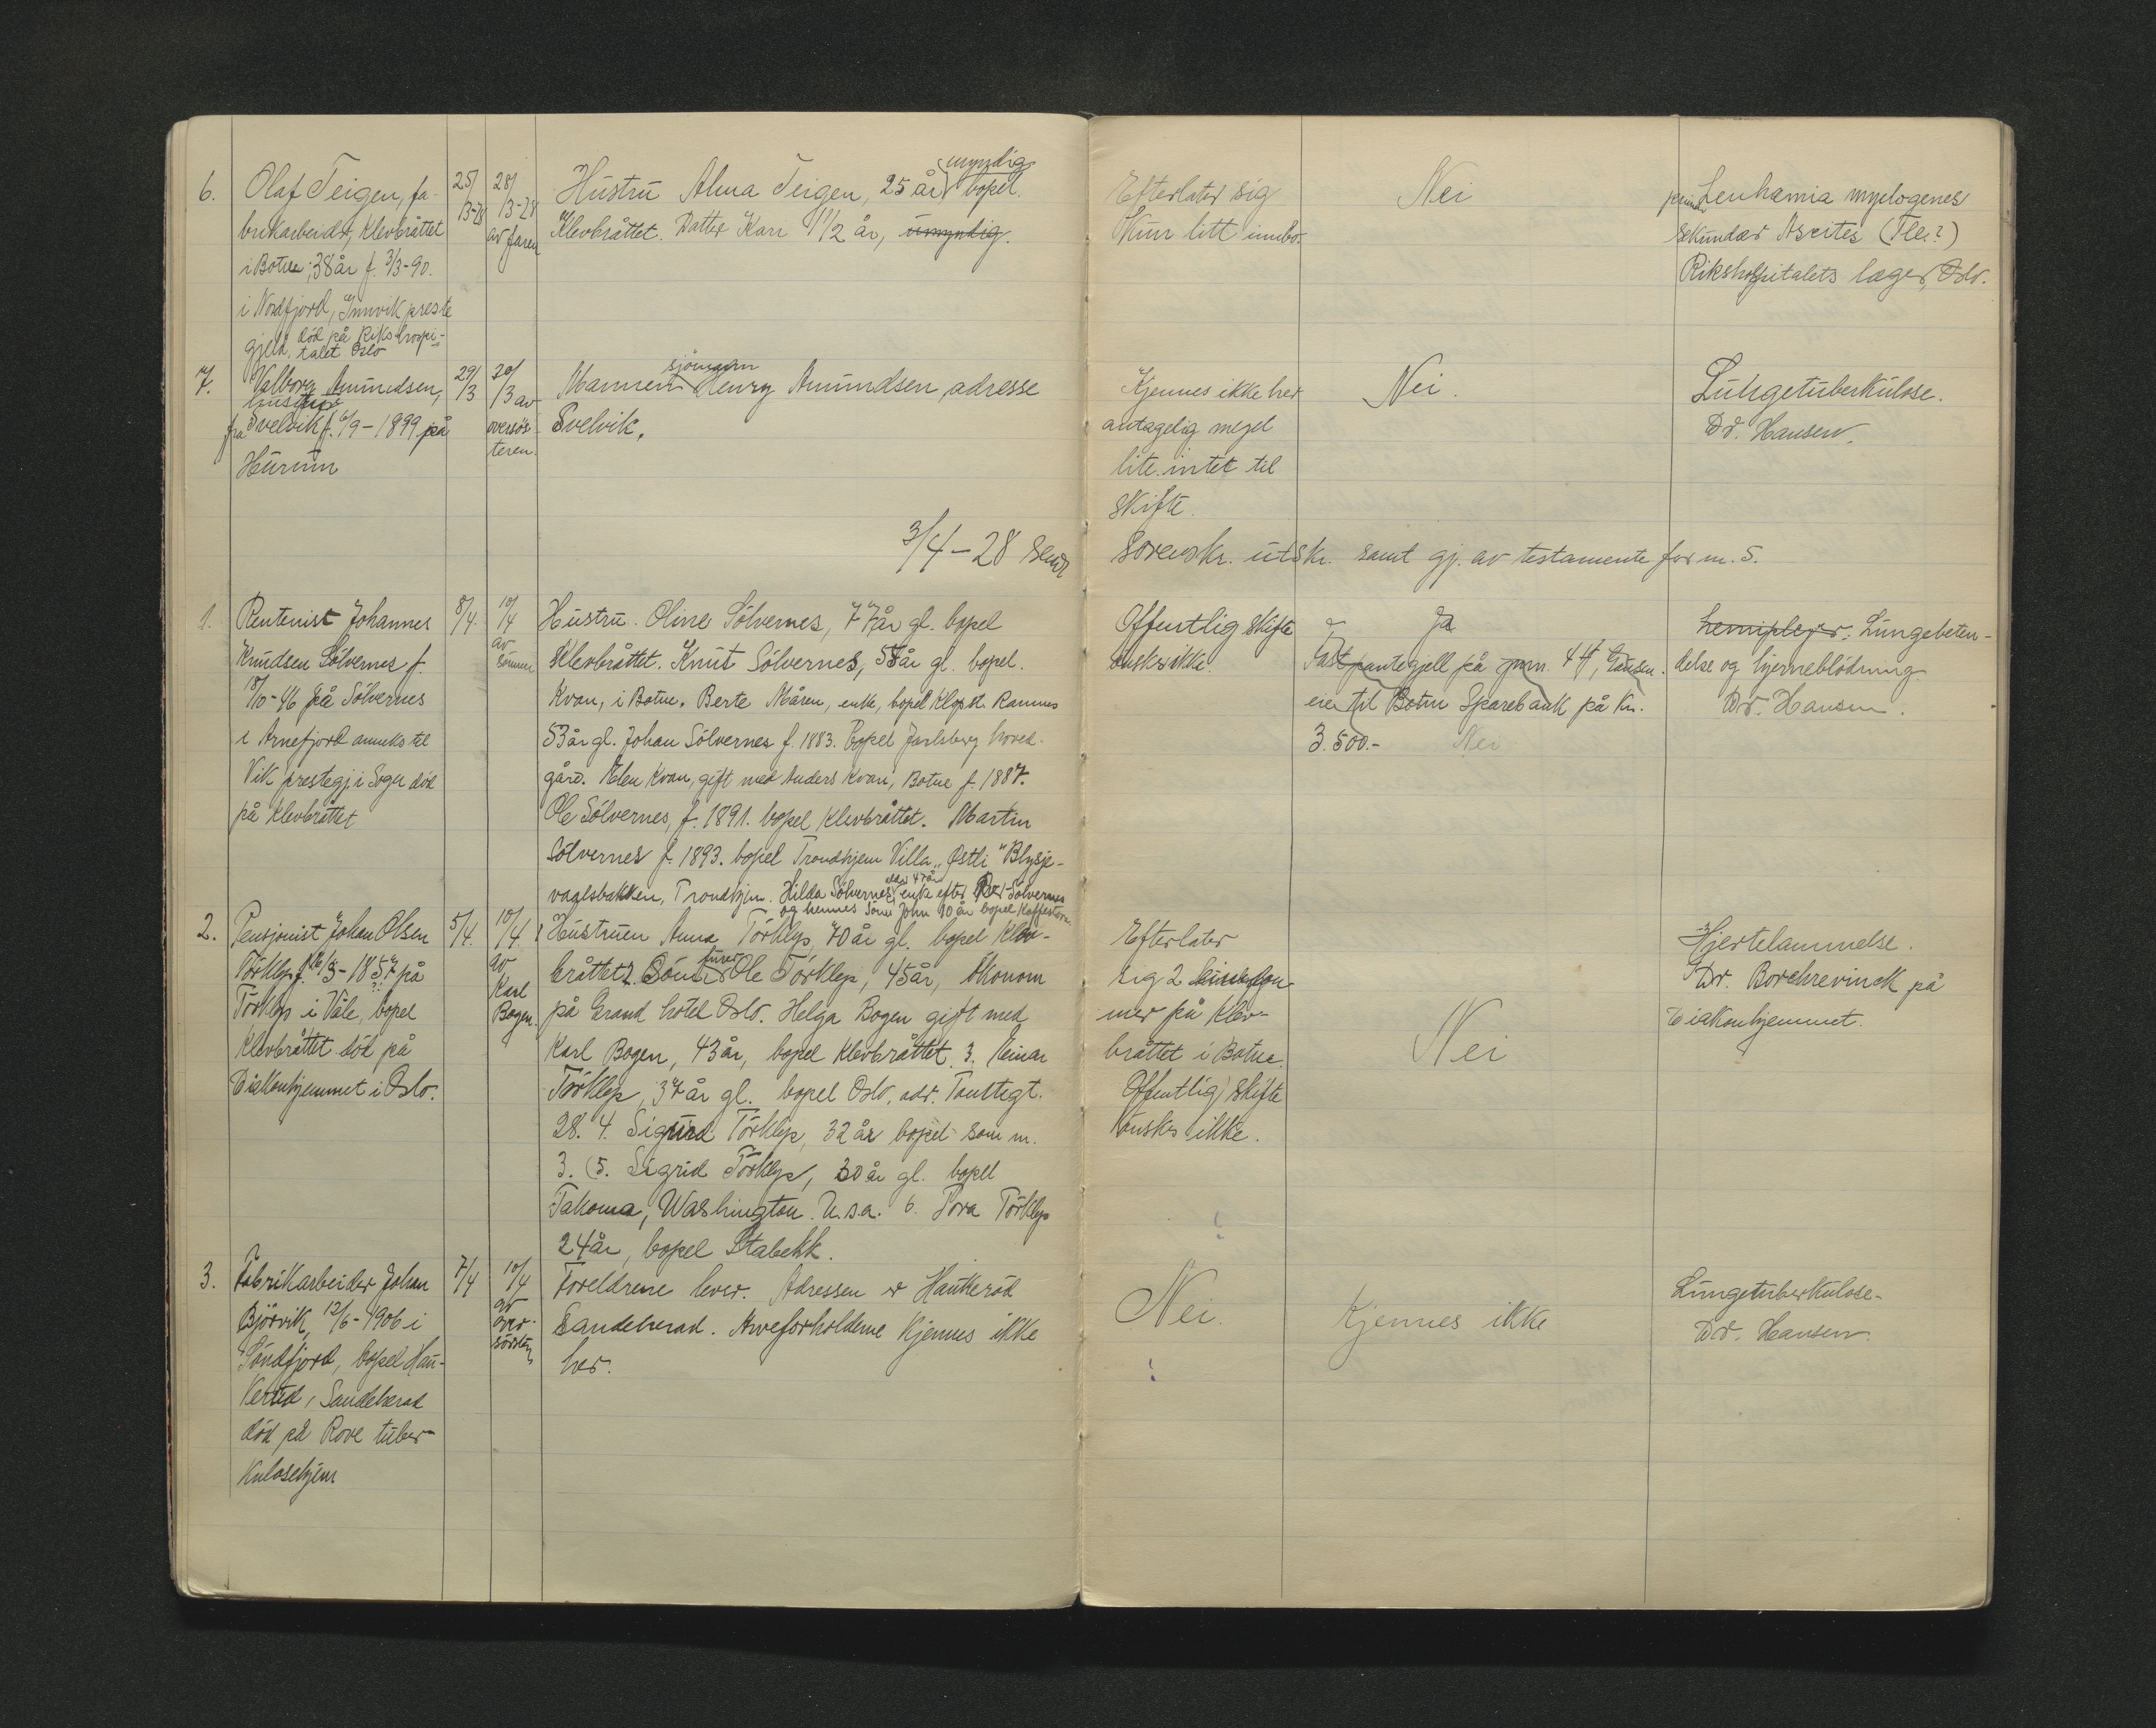 6. Olaf Teigen, fa-
brikarbeider, Klevbråttet
i Botne, 38 år f. 3/3-90.
i Nordfjord, Innvik preste
gjeld, död på Rikshospi-
talet Oslo
25/3-28
28/3-28
av faren
Hustru Alma Teigen, 25 år myndig bopel.
Klevbråttet. Datter Kari 1 1/2 år, umyndig.
Efterlater sig
kun litt innbo
Nei
Leuhamia myelogenes
sekundær Ascites
Rikshospitalets læger, Oslo.
7. Valborg Amundsen,
hustru
fra Svelvik f. 6/9-1899 på
Hurum
29/3
30/3 av
oversös-
teren.
Mannen sjömann Henry Amundsen, adresse
Svelvik.
Kjennes ikke her
antagelig meget
lite. intet til
skifte.
Nei.
Lungetuberkulose.
Dr. Hansen.
3/4-28 sendt
Sorenskr. utskr. samt gj. av testamente for m. 5.
1. Rentenist Johannes
Knudsen Sölvernes f.
18/10-46 på Sölvernes
i Arnefjord anneks til
Vik prestegj i Sogn död
på Klevbråttet
8/4.
10/4
av
sönnen
Hustru. Oline Sölvernes, 77 år gl. bopel
Klevbråttet. Knut Sölvernes, 55 år gl. bopel.
Kvan, i Botne. Berte Måren, enke, bopel Klopst. Ramnes
53 år gl. Johan Sölvernes f. 1883. Bopel Jarlsberg hoved-
gård. Elen Kvan, gift med Anders Kvan, Botne f. 1887.
Ole Sölvernes, f. 1891. bopel Klevbråttet. Martin
Sölvernes f. 1893. bopel Trondhjem Villa „Östli" Blysje-
vaglsbakken, Trondhjem. Hilda Sölvernes, enke efter Per Sölvernes
og hennes sönn John 10 år bopel
Offentlig skifte
önskes ikke.
Ja
Fast pantegjell på
eie til Botne Sparebank på Kr.
3.500.- Nei
hemiplegi. Lungebeten-
delse og hjerneblödning
Dr. Hansen.
2. Pensjonist Johan Olsen
Törklep f. 26/3-1857 på
Törklep i Våle, bopel
Klevbråttet död på
Diakonhjemmet i Oslo.
5/4.
10/4.
av
Karl
Bogen.
Hustruen Anna Törklep, 70 år gl. bopel Klev-
bråttet. Sönn Ole Törklep, 45 år, Ökonom
på Grand hotel Oslo. Helga Bogen gift med
Karl Bogen, 43 år, bopel Klevbråttet. 3. Einar
Törklep, 37 år gl. bopel Oslo, adr. Toultegt.
28. 4. Sigurd Törklep, 32 år bopel som m.
3. 5. Sigrid Törklep, 30 år gl. bopel
Takoma, Washington. U.s.a. 6. Tora Törklep
24 år, bopel Stabekk.
Efterlater
sig 2
mer på Klev-
bråttet i Botne.
Offentlig skifte
önskes ikke.
Nei
Hjertelammelse.
Dr. Borchrevinck på
Diakonhjemmet.
3. Fabrikarbeider Johan
Björvik, 12/6-1906 i
Söndfjord, bopel Hau-
kerød, Sandeherad
död på Rove tuber-
kulosehjem
7/4
10/4
av
over-
sösteren
Foreldrene lever. Adressen er Haukeröd
Sandeherad. Arveforholdene Kjennes ikke
her.
Nei.
Kjennes ikke
Lungetuberkulose-
Dr. Hansen.